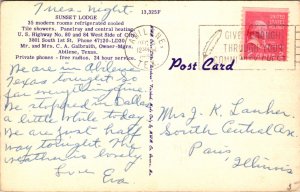 Tues. night
SUNSET LODGE
35 modern rooms refrigerated cooled
Tile showers. Panelray and central heating.
U. S. Highway No. 80 at West Side of City.
3801 South 1st St. Phone 47120-L3301.
Mr. and Mrs. C. A. Galbraith, Owner-Mgrs.
Abilene, Texas.
Private phones - free radios. 24 hour service.
13,325F
We are in Abilene
Texas tonight.
We stopped in Dallas
a little while today
We are just half
way tonight. The
weather is lovely
Love
Eva
Post Card
GIVE
THROUGH YOUR
COMMUNITY CHEST
Mrs. J. K. Lauher
South Central Ave
Paris
Illinois